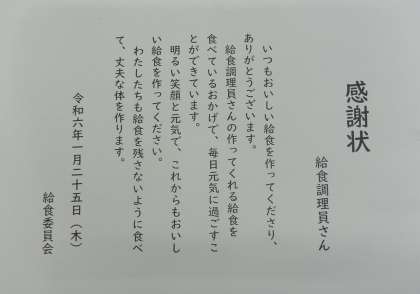 感謝状
給食調理員さん
いつもおいしい給食を作ってくださり、
ありがとうございます。
給食調理員さんの作ってくれる給食を
食べているおかげで、毎日元気に過ごすこ
とができています。
明るい笑顔と元気で、これからもおいし
い給食を作ってください。
わたしたちも給食を残さないように食べ
て、丈夫な体を作ります。
令和六年一月二十五日（木）
給食委員会